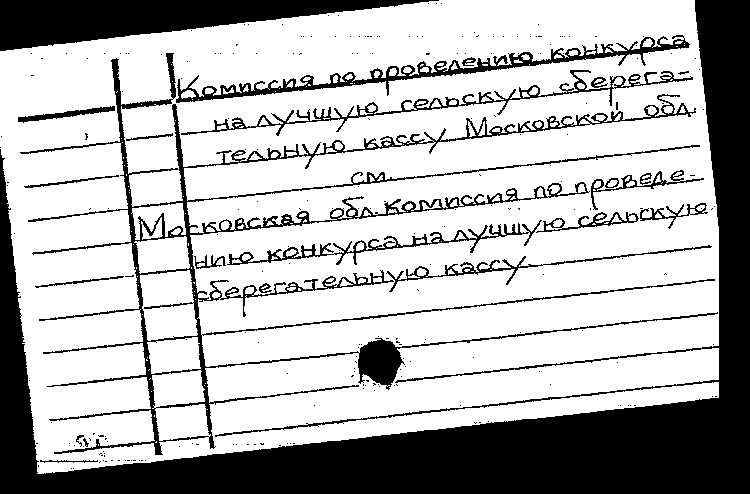 Комиссия по проведению конкурса
на лучшую сельскую сберега-
тельную кассу Московской обл.
см.
Московская обл. комиссия по проведе-
нию конкурса на лучшую сельскую
сберегательную кассу